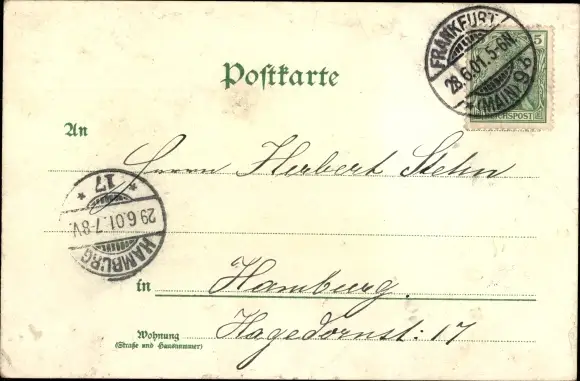 FRANKFURT
28.6.01.5-6N.
*(MAIN) 9 b
5
REICHSPOST
Postkarte
An
Herrn Herbert Stehn
* 17 *
29.6.01.7-8V.
HAMBURG
in Hamburg.
Wohnung
(Straße und Hausnummer)
Hagedornst: 17